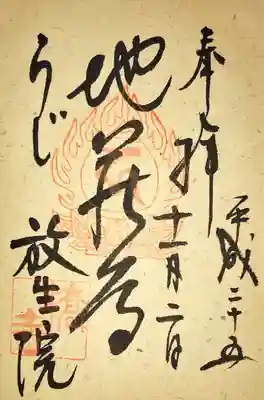 奉拝
平成二十五
十一月二日
地蔵尊
うじ
放生院